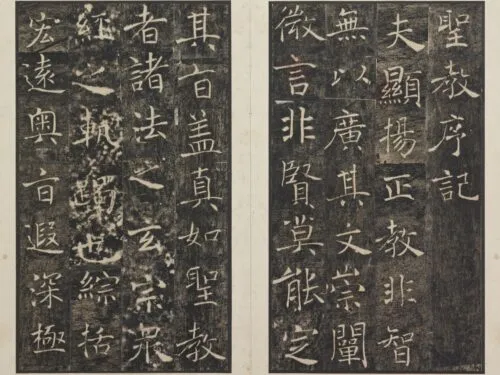 聖教序記
夫顯揚正教非智
無以廣其文崇闡
微言非賢莫能定
其旨盖真如聖教
者諸法之玄宗眾
經之軌躅也綜括
宏遠奧旨遐深極